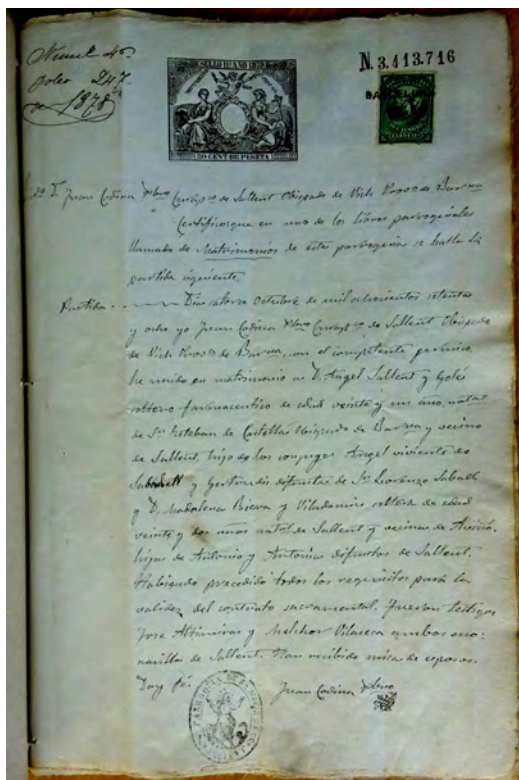 N. 3.413.716
SELLO 11º AÑO 1878
50 CENT DE PESETA
folio 247
1878
Dn. Juan Codina Pbro de Sallent Obispado de Vich Prova de Barna
Certifico que en uno de los libros parroquiales
llamado de Matrimonios de esta parroquia se halla la
partida siguiente.
Partida. Dia catorze Octubre de mil ochocientos setenta
y ocho yo Juan Codina Pbro de Sallent Obispado
de Vich Prova de Barna, con el competente permiso,
he unido en matrimonio a D. Angel Sallent y
soltero farmaceutico de edad veinte y un año, natal
de Sn Esteban de Castellar Obispado de Barna y vecino
de Sallent, hijo de los conyuges Angel viviente de
Sabadell y Gertrudis difunta de Sn Lorenzo Saball
y Da Madalena Riera y Viladomiu soltera de edad
veinte y dos años natal de Sallent y vecina de Aviñó,
hija de Antonio y Antonia difuntos de Sallent.
Habiendo precedido todos los requisitos para la
validez del contrato sacramental. Fueron testigos
Jose Altimiras y Melchor Vilaseca ambos
de Sallent. Han recibido misa de esposos.
Doy fé. Juan Codina Pbro